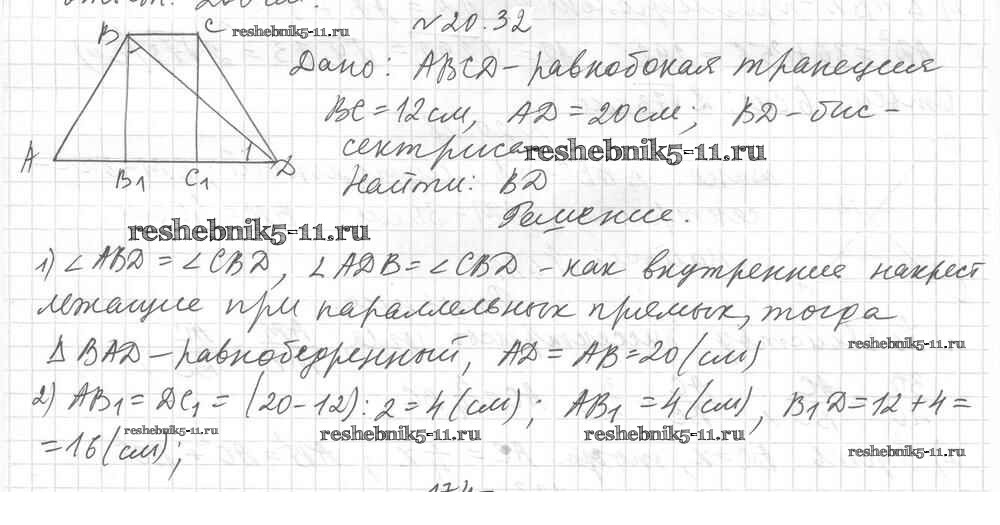 B C reshebnik5-11.ru №20.32
Дано: ABCD - равнобокая трапеция
BC = 12 см, AD = 20 см; BD - бис-
сектриса reshebnik5-11.ru
A B₁ C₁ D Найти: BD
Решение.
reshebnik5-11.ru
1) ∠ABD = ∠CBD, ∠ADB = ∠CBD - как внутренние накрест
лежащие при параллельных прямых, тогда
Δ BAD - равнобедренный, AD = AB = 20 (см) reshebnik5-11.ru
2) AB₁ = DC₁ = (20-12):2 = 4 (см); AB₁ = 4 (см), B₁D = 12 + 4 =
= 16 (см); reshebnik5-11.ru reshebnik5-11.ru reshebnik5-11.ru reshebnik5-11.ru